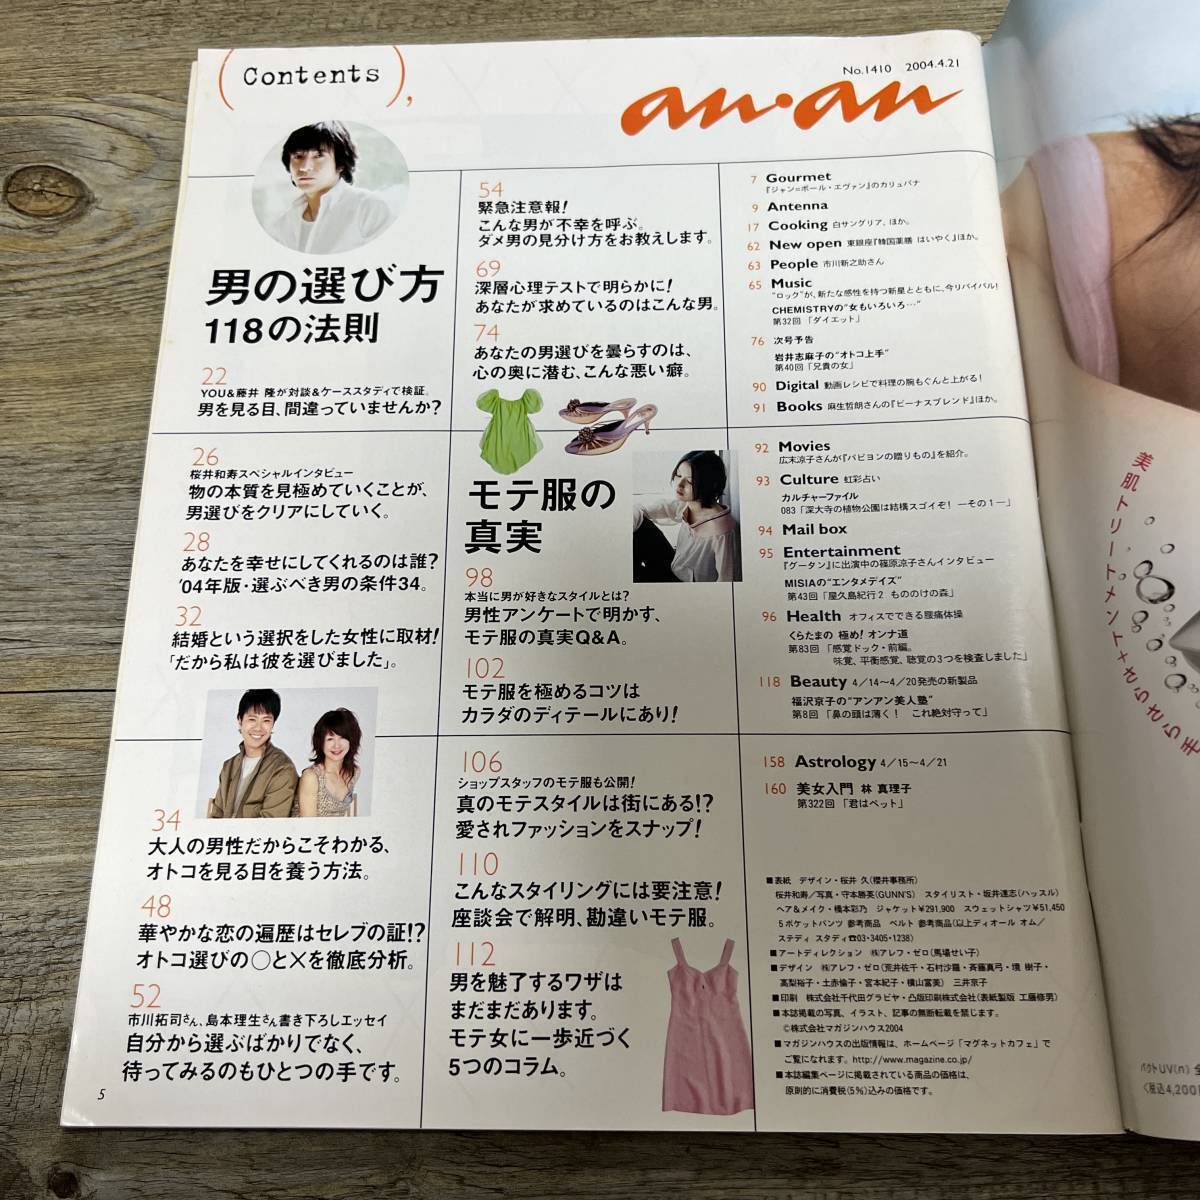 Contents
No.1410 2004.4.21
an・an
男の選び方
118の法則
22
YOU&藤井 隆が対談&ケーススタディで検証。
男を見る目、間違っていませんか?
26
桜井和寿スペシャルインタビュー
物の本質を見極めていくことが、
男選びをクリアにしていく。
28
あなたを幸せにしてくれるのは誰?
'04年版・選ぶべき男の条件34。
32
結婚という選択をした女性に取材!
「だから私は彼を選びました」。
34
大人の男性だからこそわかる、
オトコを見る目を養う方法。
48
華やかな恋の遍歴はセレブの証!?
オトコ選びの○と×を徹底分析。
52
市川拓司さん、島本理生さん書き下ろしエッセイ
自分から選ぶばかりでなく、
待ってみるのもひとつの手です。
5
54
緊急注意報!
こんな男が不幸を呼ぶ。
ダメ男の見分け方をお教えします。
69
深層心理テストで明らかに!
あなたが求めているのはこんな男。
74
あなたの男選びを曇らすのは、
心の奥に潜む、こんな悪い癖。
モテ服の
真実
98
本当に男が好きなスタイルとは?
男性アンケートで明かす、
モテ服の真実Q&A。
102
モテ服を極めるコツは
カラダのディテールにあり!
106
ショップスタッフのモテ服も公開!
真のモテスタイルは街にある!?
愛されファッションをスナップ!
110
こんなスタイリングには要注意!
座談会で解明、勘違いモテ服。
112
男を魅了するワザは
まだまだあります。
モテ女に一歩近づく
5つのコラム。
7 Gourmet
『ジャン=ポール・エヴァン』のカリュパナ
9 Antenna
17 Cooking 白サングリア、ほか。
62 New open 東銀座『韓国薬膳 はいやく』ほか。
63 People 市川新之助さん
65 Music
"ロック"が、新たな感性を持つ新星とともに、今リバイバル!
CHEMISTRYの"女もいろいろ…"
第32回「ダイエット」
76 次号予告
岩井志麻子の"オトコ上手"
第40回「兄貴の女」
90 Digital 動画レシピで料理の腕もぐんと上がる!
91 Books 麻生哲朗さんの『ビーナスブレンド』ほか。
92 Movies
広末涼子さんが『パピヨンの贈りもの』を紹介。
93 Culture 虹彩占い
カルチャーファイル
083「深大寺の植物公園は結構スゴイぞ! ―その1―」
94 Mail box
95 Entertainment
『グータン』に出演中の篠原涼子さんインタビュー
MISIAの"エンタメデイズ"
第43回「屋久島紀行2 もののけの森」
96 Health オフィスでできる腰痛体操
くらたまの 極め! オンナ道
第83回「感覚ドック・前編。
味覚、平衡感覚、聴覚の3つを検査しました」
118 Beauty 4/14〜4/20発売の新製品
福沢京子の"アンアン美人塾"
第8回「鼻の頭は薄く! これ絶対守って」
158 Astrology 4/15〜4/21
160 美女入門 林 真理子
第322回「君はペット」
■表紙 デザイン・桜井 久(櫻井事務所)
桜井和寿/写真・守本勝英(GUNN'S) スタイリスト・坂井達志(ハッスル)
ヘア&メイク・橋本彩乃 ジャケット¥291,900 スウェットシャツ¥51,450
5ポケットパンツ 参考商品 ベルト 参考商品(以上ディオール オム/
ステディ スタディ☎03・3405・1238)
■アートディレクション ㈱アレフ・ゼロ(馬場せい子)
■デザイン ㈱アレフ・ゼロ(荒井佐千・石村沙羅・斉藤真弓・環 樹子・
高梨裕子・土赤倫子・宮本紀子・横山富美) 三井京子
■印刷 株式会社千代田グラビヤ・凸版印刷株式会社(表紙製版 工藤修男)
■本誌掲載の写真、イラスト、記事の無断転載を禁じます。
©株式会社マガジンハウス2004
■マガジンハウスの出版情報は、ホームページ「マグネットカフェ」で
ご覧になれます。http://www.magazine.co.jp/
■本誌編集ページに掲載されている商品の価格は、
原則的に消費税(5%)込みの価格です。
美肌トリートメント+さらさら
パクトUV(n) 全
<税込4,200